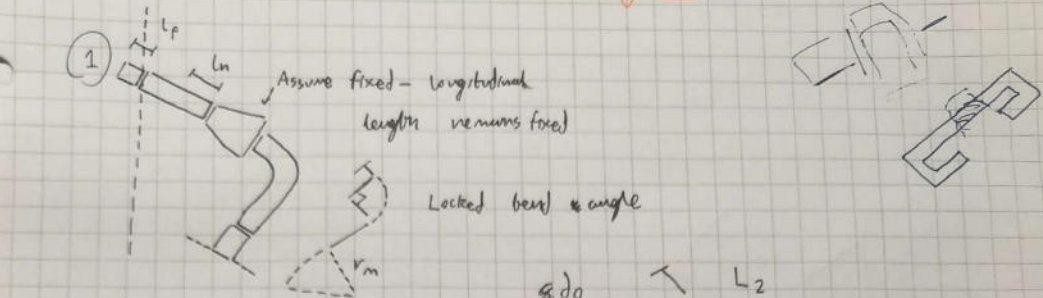 1
Lp
Ln
Assume fixed - longitudinal
length remains fixed
Locked bend angle
rm
L2